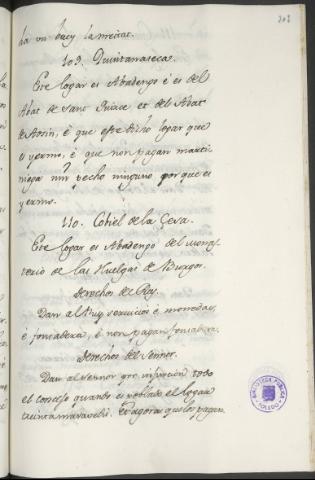 302
ha un buey la meitat.
109. Quintanaseca.
Este logar es Abadengo é es del
Abat de Sant Quirce et del Abat
de Rosin, é que este dicho logar que
es yermo, é que non pagan marti
niega nin pecho ninguno porque es
yermo.
110. Cotiel de la Ceva.
Este logar es Abadengo del Monas
terio de las Huelgas de Burgos.
Derechos del Rey.
Dan al Rey servicios é monedas,
é fonsadera, é non pagan fonsadera.
Derechos del Sennor.
Dan al Sennor por infurcion todo
el concejo quando es poblado el logar
treinta maravedis. Et agora que los pagan
BIBLIOTECA PUBLICA
TOLEDO